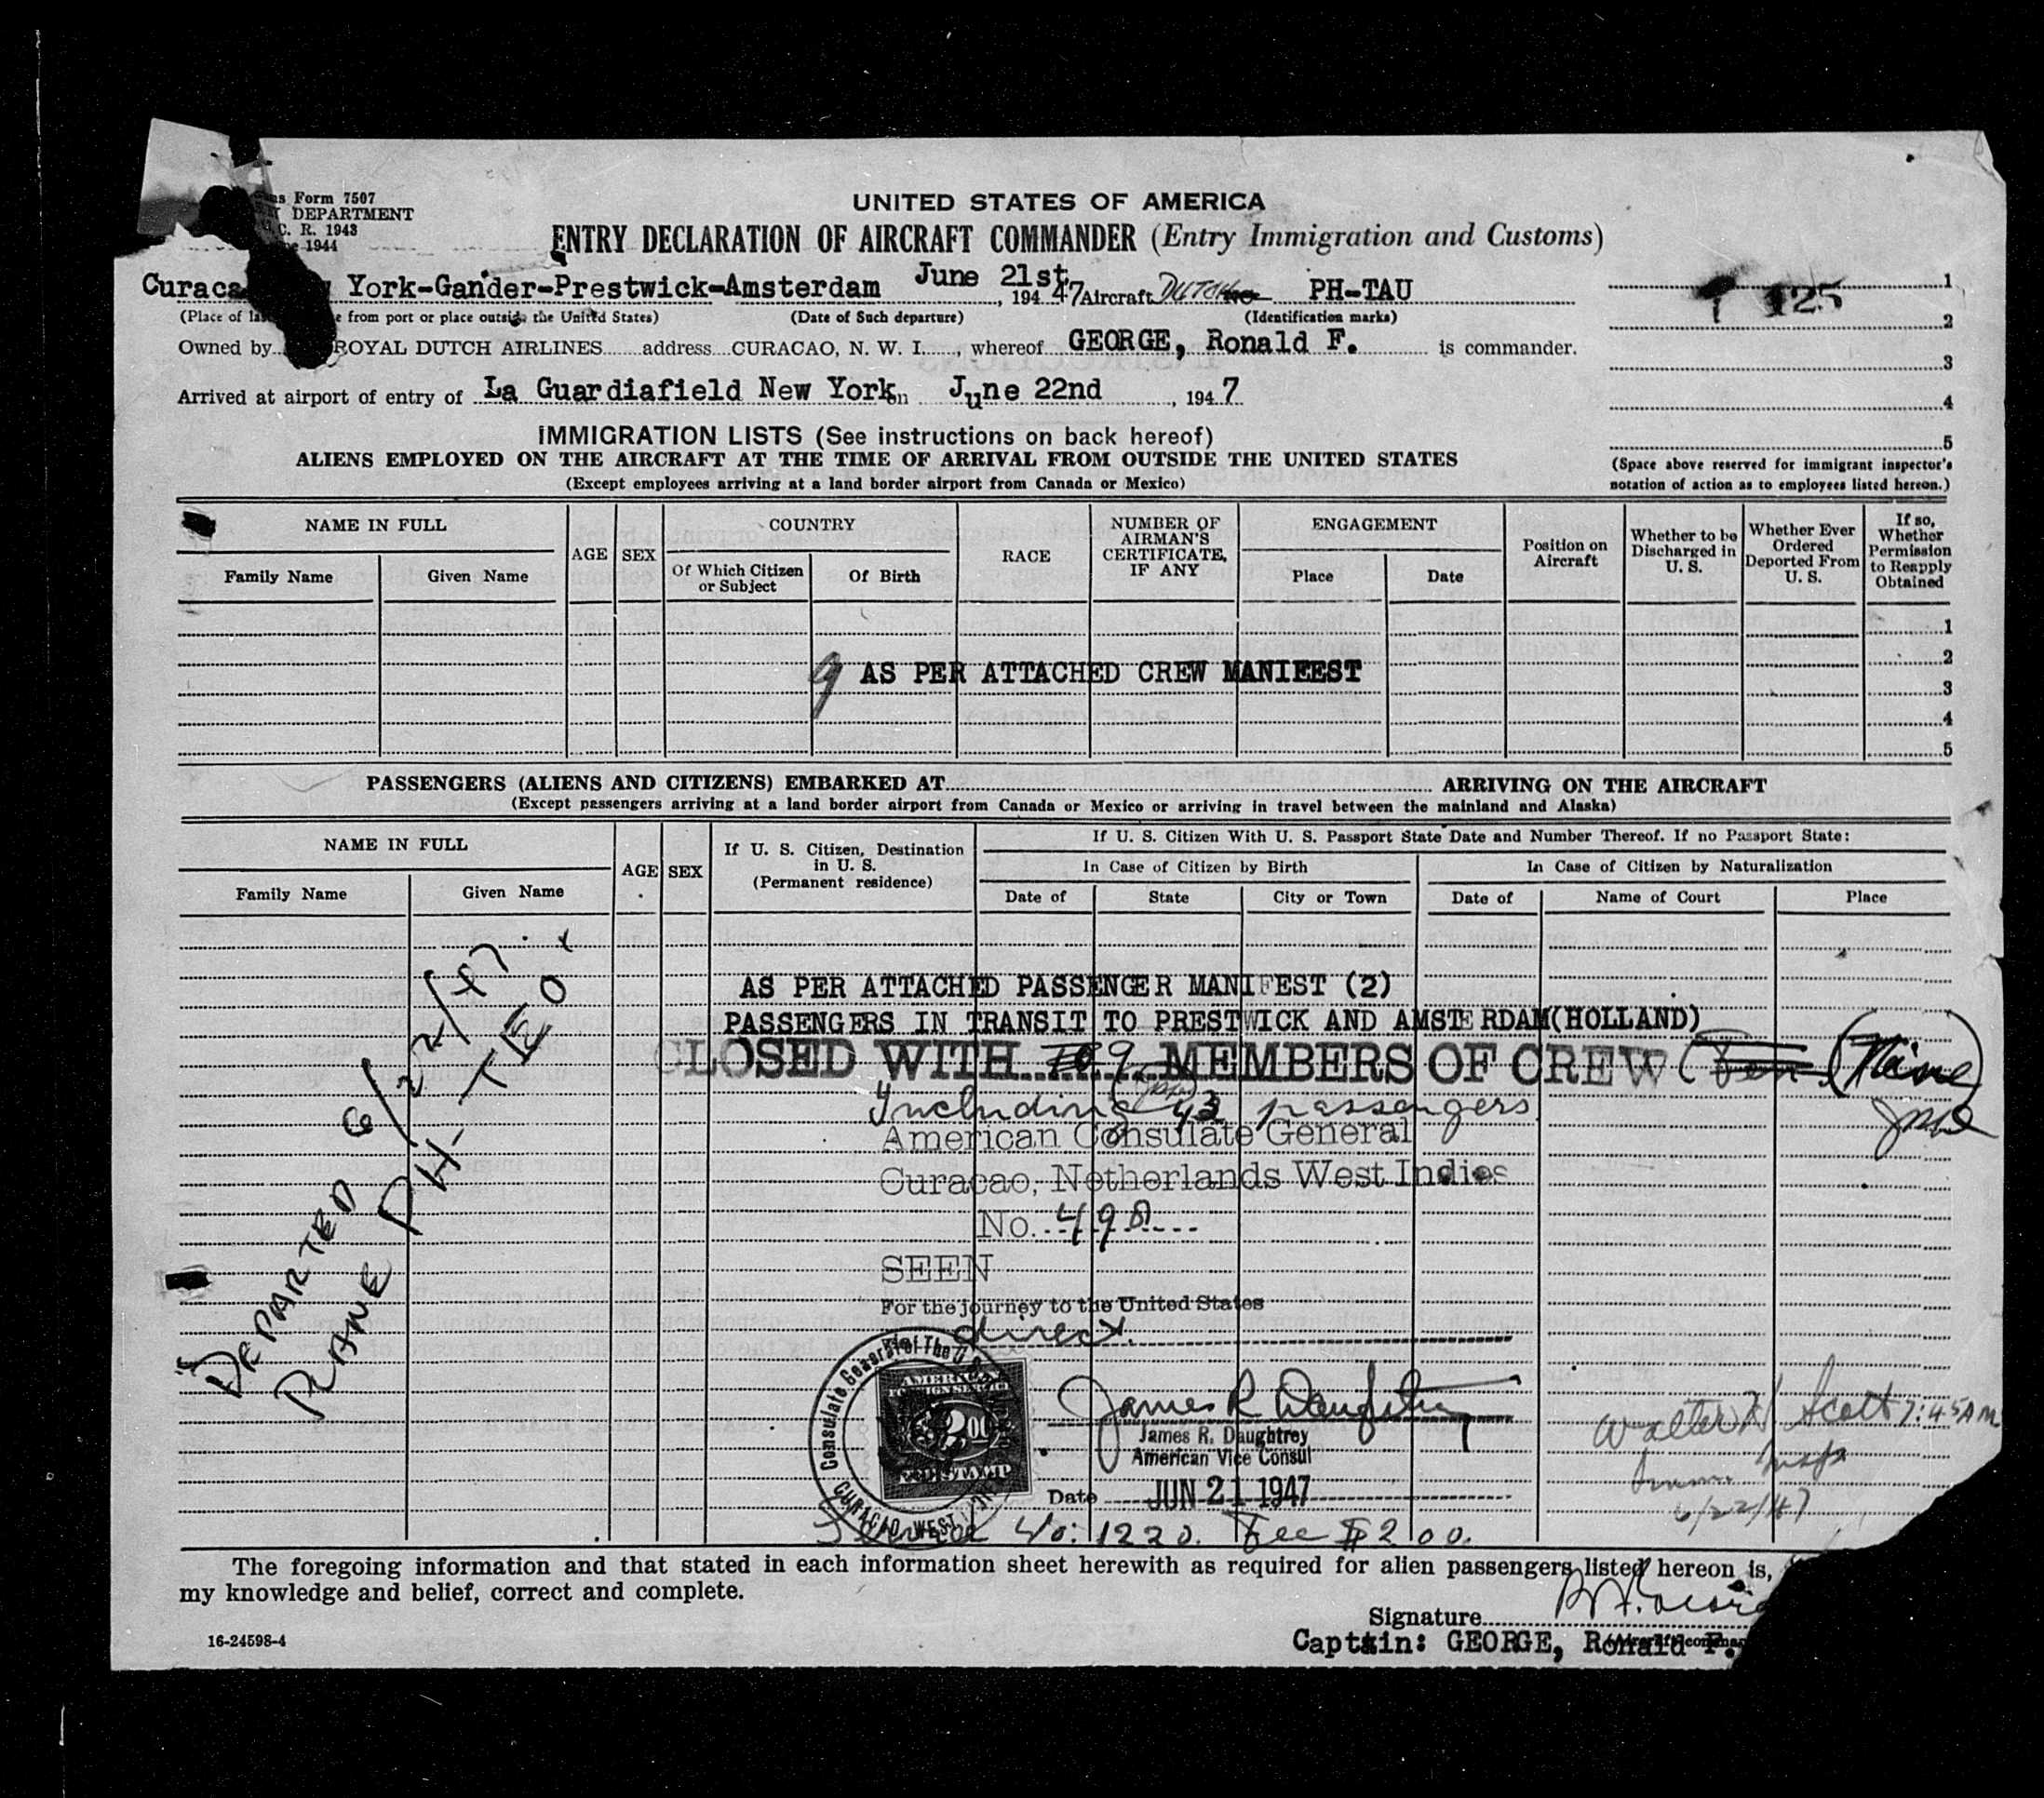 Form 7507
DEPARTMENT
C. R. 1943
1944
UNITED STATES OF AMERICA
ENTRY DECLARATION OF AIRCRAFT COMMANDER (Entry Immigration and Customs)
York-Gander-Prestwick-Amsterdam June 21st, 1947 Aircraft DUTCH PH-TAU
(Place of from port or place outside the United States) (Date of Such departure) (Identification marks)
125
Owned by ROYAL DUTCH AIRLINES address CURACAO, N. W. I., whereof GEORGE, Ronald F. is commander.
Arrived at airport of entry of La Guardiafield New York on June 22nd, 1947
1
2
3
4
5
(Space above reserved for immigrant inspector's notation of action as to employees listed hereon.)
IMMIGRATION LISTS (See instructions on back hereof)
ALIENS EMPLOYED ON THE AIRCRAFT AT THE TIME OF ARRIVAL FROM OUTSIDE THE UNITED STATES
(Except employees arriving at a land border airport from Canada or Mexico)
NAME IN FULL
Family Name
Given Name
AGE
SEX
COUNTRY
Of Which Citizen or Subject
Of Birth
RACE
NUMBER OF AIRMAN'S CERTIFICATE, IF ANY
ENGAGEMENT
Place
Date
Position on Aircraft
Whether to be Discharged in U. S.
Whether Ever Ordered Deported From U. S.
If so, Whether Permission to Reapply Obtained
1
2
9 AS PER ATTACHED CREW MANIFEST
3
4
5
PASSENGERS (ALIENS AND CITIZENS) EMBARKED AT ARRIVING ON THE AIRCRAFT
(Except passengers arriving at a land border airport from Canada or Mexico or arriving in travel between the mainland and Alaska)
NAME IN FULL
Family Name
Given Name
AGE
SEX
If U. S. Citizen, Destination in U. S.
(Permanent residence)
If U. S. Citizen With U. S. Passport State Date and Number Thereof. If no Passport State:
In Case of Citizen by Birth
Date of
State
City or Town
In Case of Citizen by Naturalization
Date of
Name of Court
Place
DEPARTED 6/22/47.
PLANE PH-TEO.
AS PER ATTACHED PASSENGER MANIFEST (2)
PASSENGERS IN TRANSIT TO PRESTWICK AND AMSTERDAM(HOLLAND)
CLOSED WITH 9 MEMBERS OF CREW (Nine)
Including 43 passengers
American Consulate General
Curacao, Netherlands West Indies
No. 498
SEEN
For the journey to the United States
direct.
Consulate General of The U.
CURACAO, WEST
AMERICAN
FOREIGN SERVICE
$2.00
FEE STAMP
James R Daughtrey
James R. Daughtrey
American Vice Consul
Date JUN 21 1947
Service No: 1220. Fee $2.00.
Walter H Scott 7:45 AM
Imm. Insp
6/22/47
The foregoing information and that stated in each information sheet herewith as required for alien passengers listed hereon is,
my knowledge and belief, correct and complete.
Signature
Captain: GEORGE, Ronald F.
16-24598-4